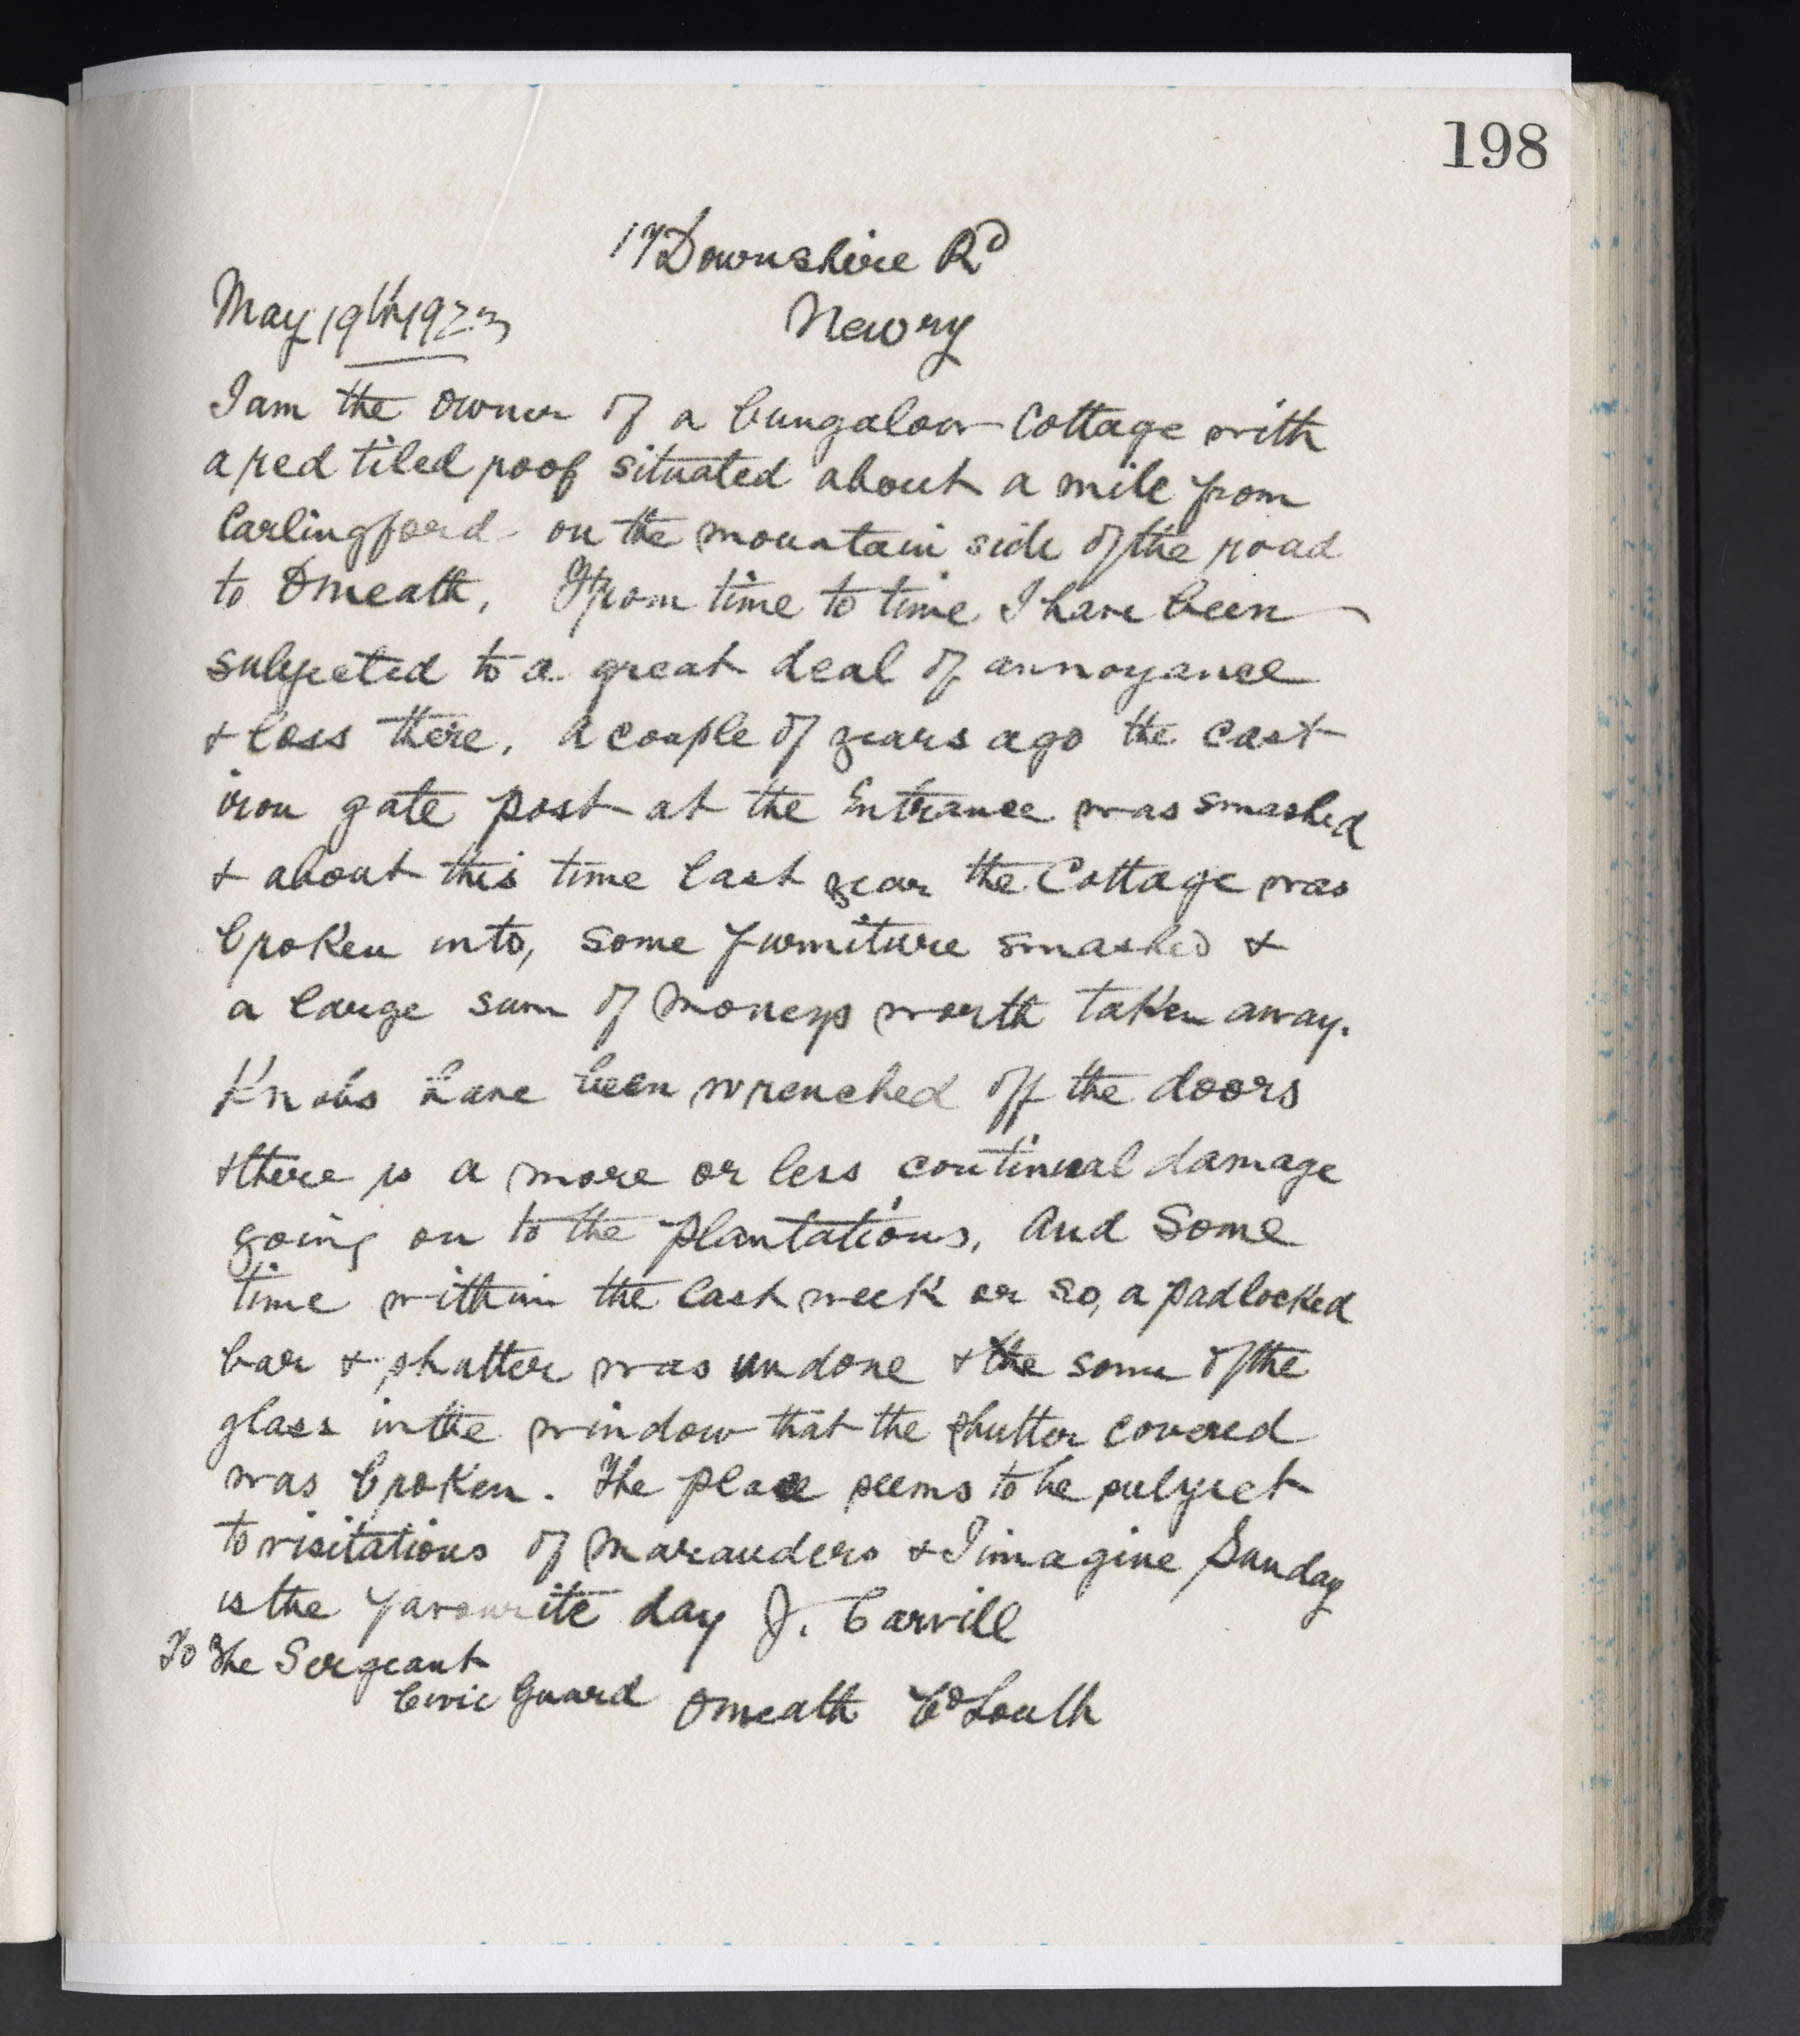 198
17 Downshire Rd
May 19th 1923
Newry
I am the owner of a bungalow Cottage with
a red tiled roof situated about a mile from
Carlingford on the mountain side of the road
to Omeath. From time to time I have been
subjected to a great deal of annoyance
& loss there. A couple of years ago the cast
iron gate post at the Entrance was smashed
& about this time last year the Cottage was
broken into, some furniture smashed &
a large sum of moneys worth taken away.
Knobs have been wrenched off the doors
& there is a more or less continual damage
going on to the plantations. And Some
time within the last week or so, a padlocked
bar & shutter was undone & the some of the
glass in the window that the shutter covered
was broken. The place seems to be subject
to visitations of marauders & I imagine Sunday
is the favourite day J. Carvill
To The Sergeant
Civic Guard Omeath Co Louth